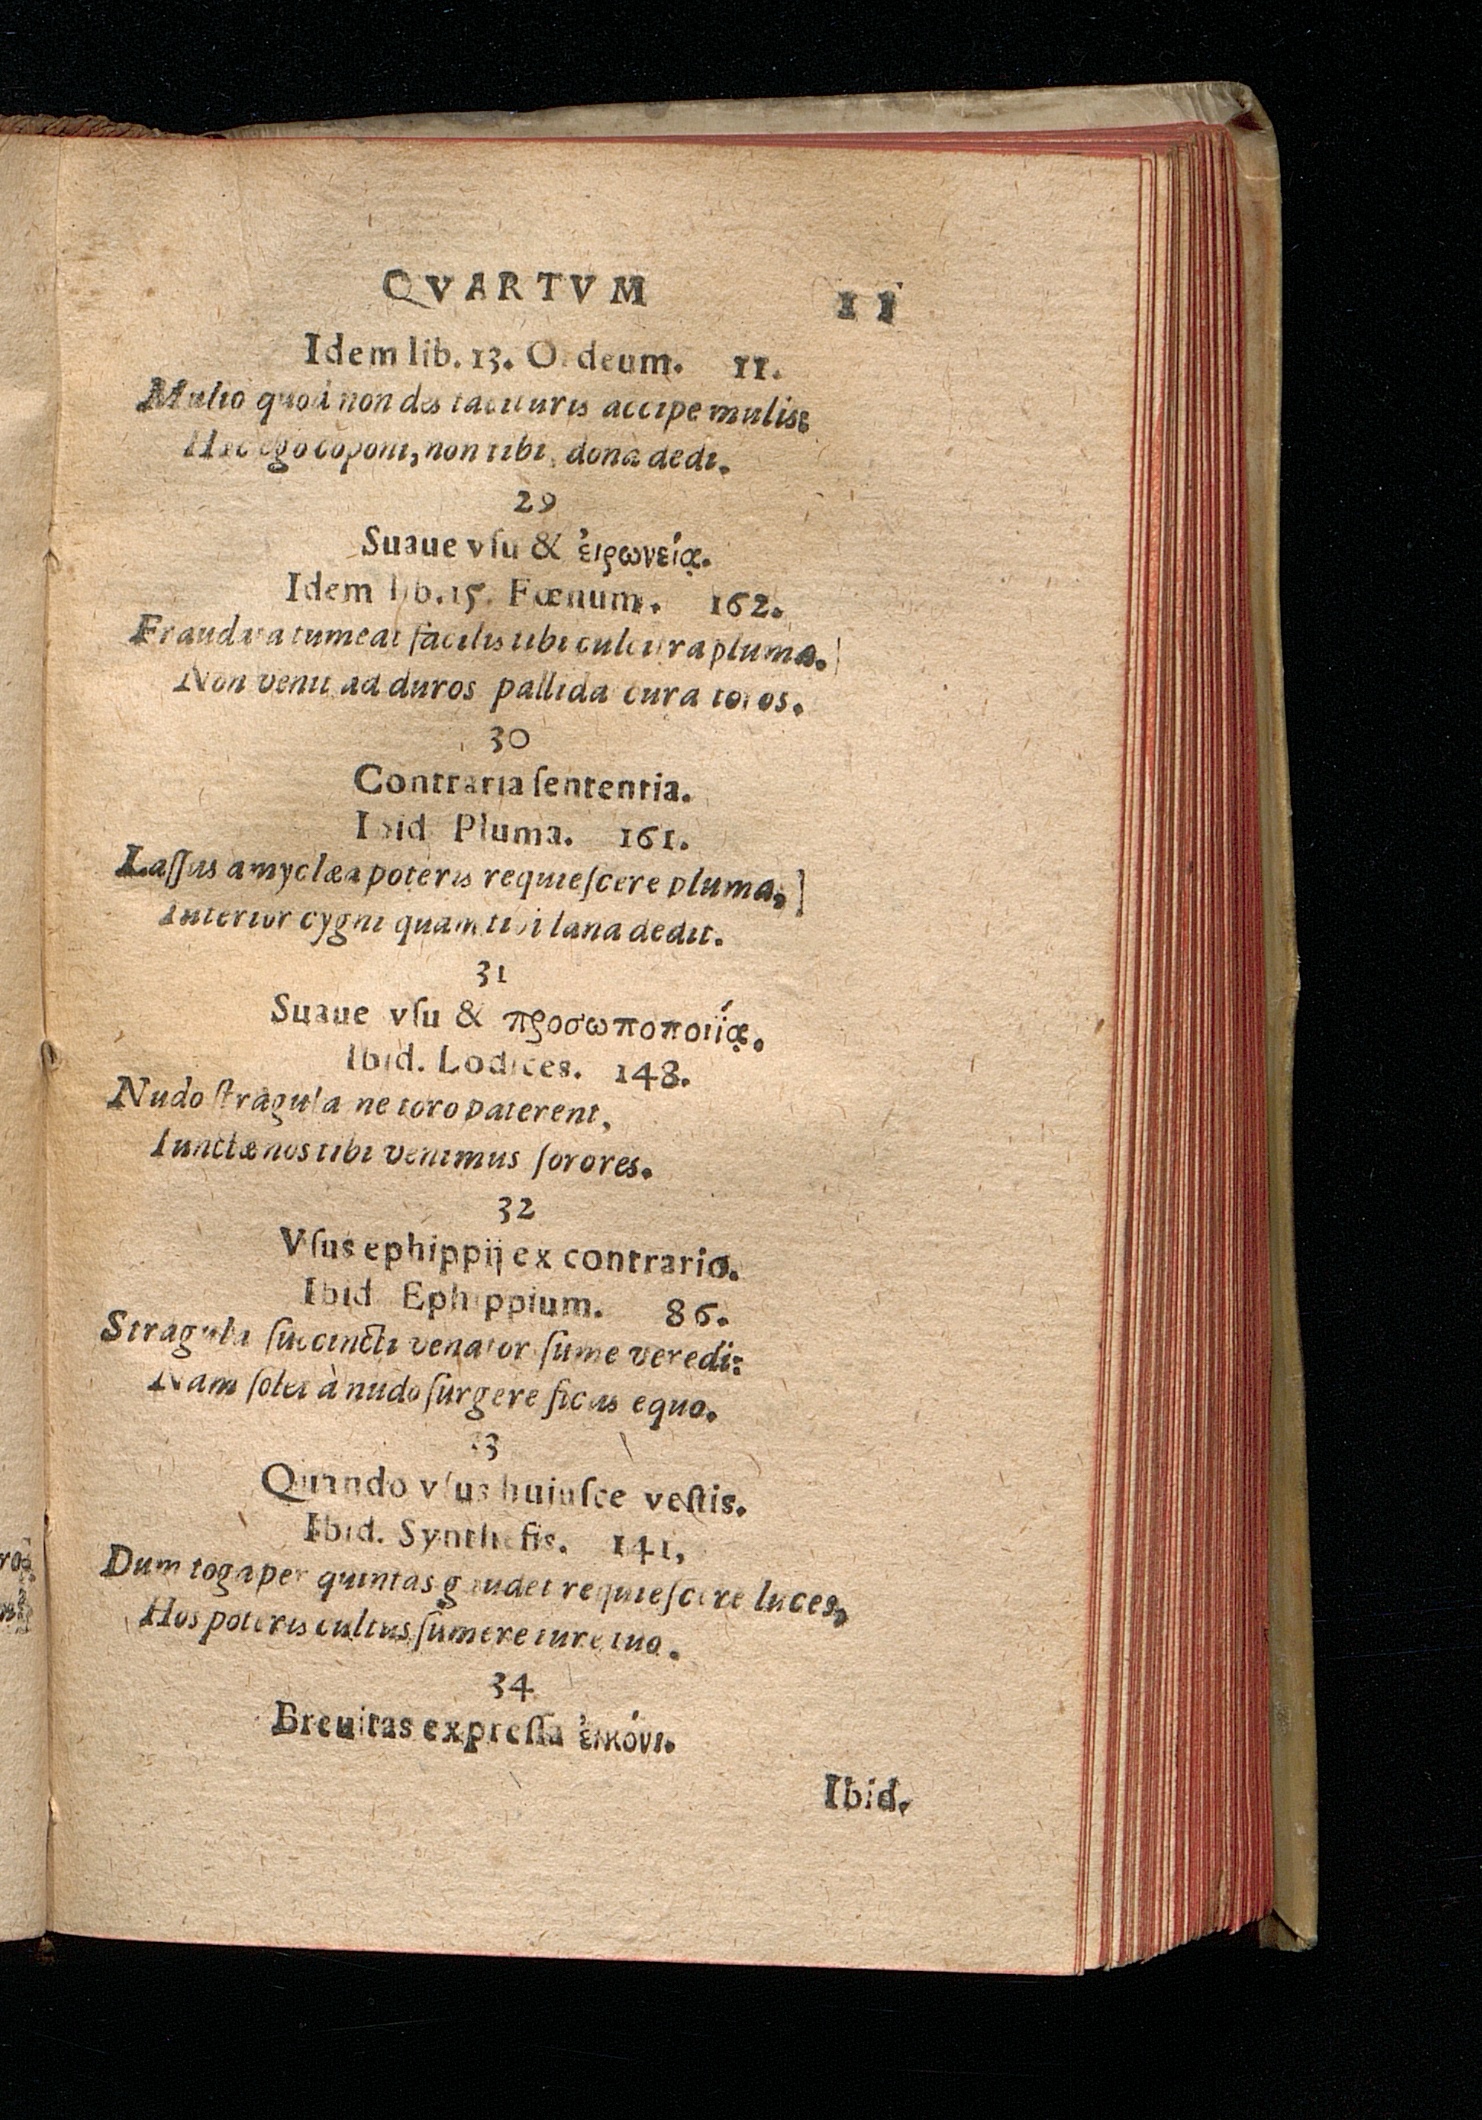 QVARTVM 11
Idem lib. 13. Ordeum. 11.
Mulio quod non des tacituris accipe mulis:
Hæc ego coponi, non tibi, dona dedi.
29
Suaue vſu & ἐιρωνείᾳ.
Idem lib. 15. Fœnum. 162.
Fraudata tumeat facilis tibi culcitra pluma.
Non venit ad duros pallida cura toros.
30
Contraria ſententia.
Ibid Pluma. 161.
Laſſus amyclæa poteris requieſcere pluma,
Interior cygni quam tibi lana dedit.
31
Suaue vſu & προσωποποιΐᾳ.
Ibid. Lodices. 148.
Nudo ſtragula ne toro paterent,
Iunctæ nos tibi venimus ſorores.
32
Vſus ephippij ex contrario.
Ibid Ephippium. 86.
Stragula ſuccincti venator ſume veredi:
Nam ſolet à nudo ſurgere ficus equo.
33
Quando vſus huiuſce veſtis.
Ibid. Syntheſis. 141,
Dum toga per quintas gaudet requieſcere luces,
Hos poteris cultus ſumere iure tuo.
34
Breuitas expreſſa ἐικόνι.
Ibid.